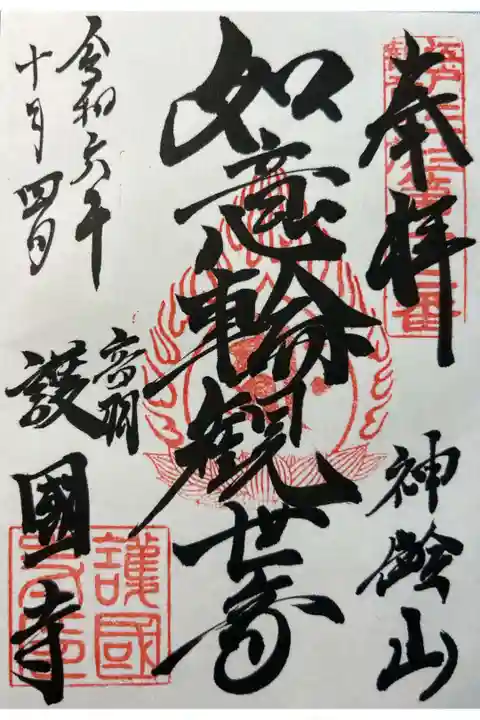 奉拝
神齢山
如意輪観世音
音羽
護國寺
令和六年
十月四日
護國